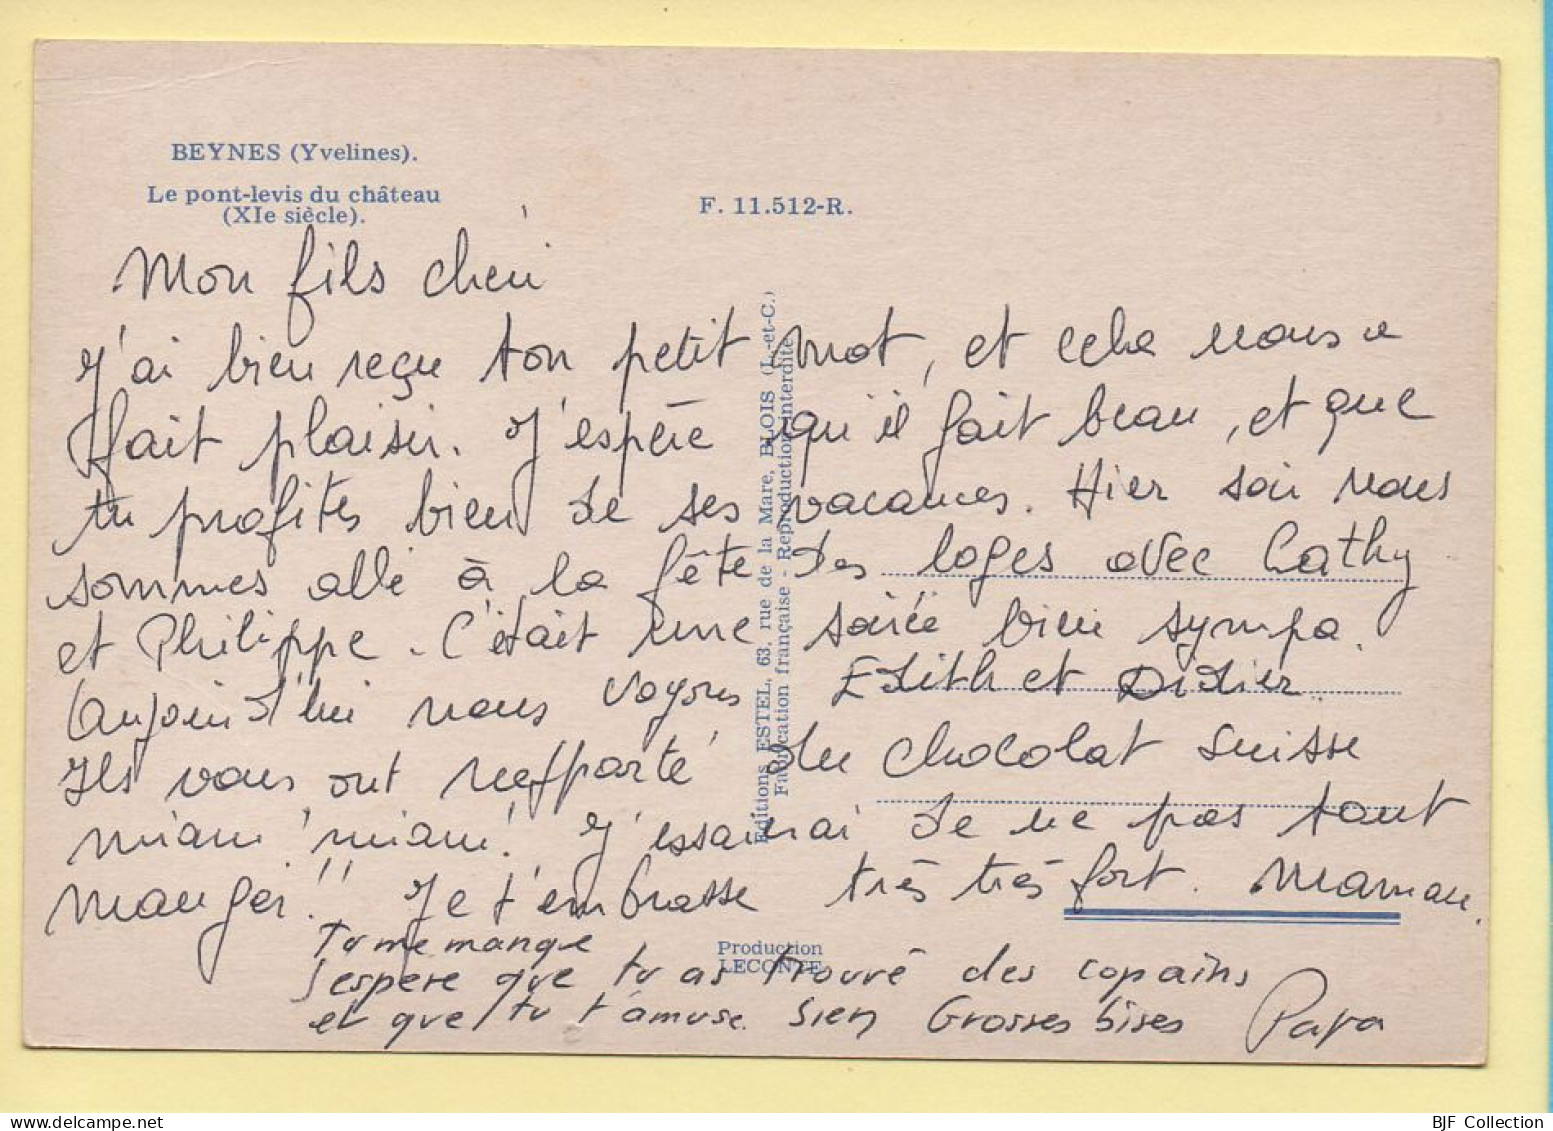 BEYNES (Yvelines).
Le pont-levis du château
(XIe siècle).
F. 11.512-R.
Mon fils chéri
J'ai bien reçu ton petit mot, et cela nous a
fait plaisir. J'espère qu'il fait beau, et que
tu profites bien de ses vacances. Hier soir nous
sommes allé à la fête des loges avec Cathy
et Philippe. C'était une soirée bien sympa.
Aujourd'hui nous voyons Edith et Didier.
Ils vous ont rapporté du chocolat suisse
miam! miam! J'essaierai de ne pas tout
manger!! Je t'embrasse très très fort. Maman.
Tu me manque
J'espère que tu as trouvé des copains
et que tu t'amuse bien Grosses bises Papa
Editions ESTEL, 63, rue de la Mare, BLOIS (L.-et-C.)
Fabrication française - Reproduction interdite
Production
LECONTE
BJF Collection